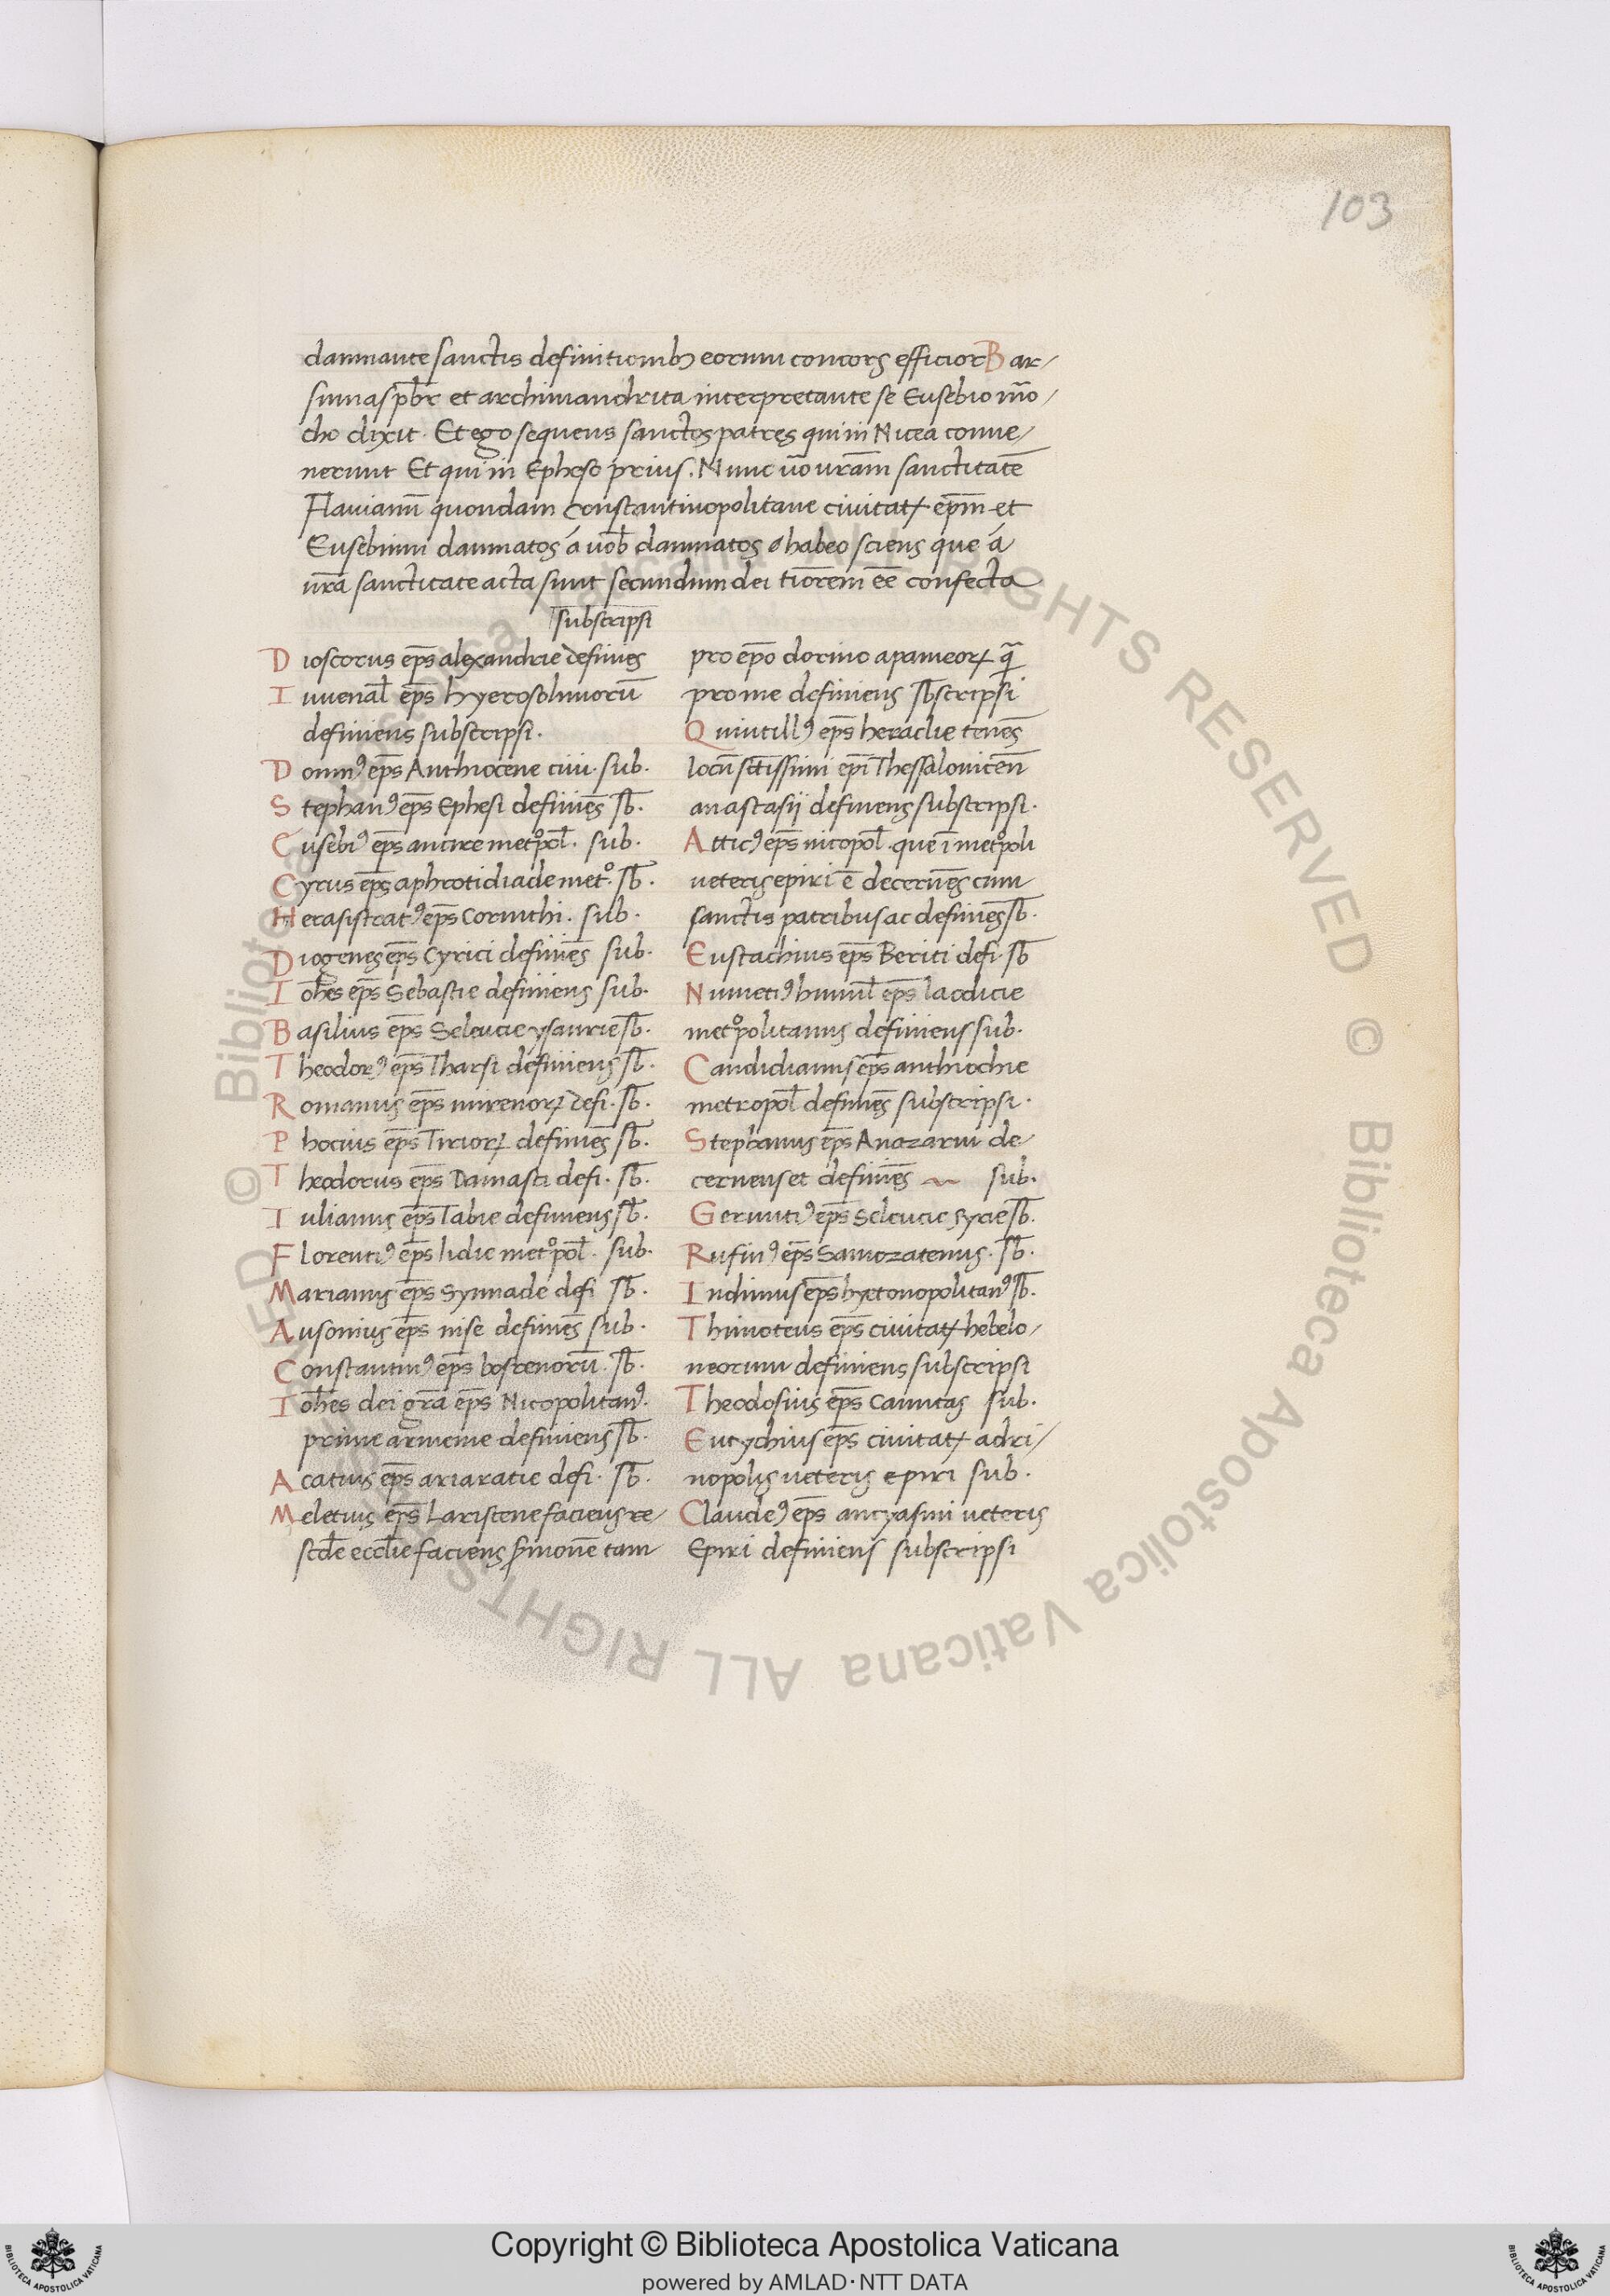 103
damnante sanctis definitionibꝫ eorum concors efficior Bar/
sumas pbr̄ et archimandrita interpretante se Eusebio mo͞/
cho dixit. Et ego sequens sanctos patres qui in Nicea conue/
nerunt Et qui in Epheso prius. Nunc u͞o ura͞m sanctitate͞
Flauianu͞ quondam Constantinopolitane ciuitatꝭ ep͞m et
Eusebium damnatos á uob̄ damnatos habeo sciens que á
ur͞a sanctitate acta sunt secundum dei ti͞orem e͞e confecta
subscripsi
Dioscorus ep͞s alexandrie definie͞s
Iuuenal̄ ep͞s hyerosolimoru͞
definiens subscripsi.
Domnꝰ ep͞s Anthiocene ciui. sub.
Stephanꝰ ep͞s Ephesi definie͞s sb̄.
Eusebiꝰ ep͞s ancire metºpol̄. sub.
Cyrus ep͞s aphrotidiade metº. sb̄.
Herasistratꝰ ep͞s Corinthi. sub.
Diogenes ep͞s Cyrici definie͞s sub.
Ioh͞es ep͞s Sebastie definiens sub.
Basilius ep͞s Seleucie ysaurie sb̄.
Theodorꝰ ep͞s Tharsi definiens sb̄.
Romanus ep͞s mirenoꝝ defi. sb̄.
Phocius ep͞s Tirioꝝ definie͞s sb̄.
Theodorus ep͞s Damasci defi. sb̄.
Iulianus ep͞s Tabie definiens sb̄.
Florentiꝰ ep͞s lidie metºpol̄. sub.
Marianus ep͞s Synnade defi sb̄.
Ausonius ep͞s nise definie͞s sub.
Constantinꝰ ep͞s bostrenoru͞. sb̄.
Ioh͞es dei gr͞a ep͞s Nicopolitanꝰ.
prime armenie definiens sb̄.
Acatius ep͞s ariaratie defi. sb̄.
Meletius ep͞s Laristene faciens re/
scd̄e eccl̄ie faciens s̄mone͞ tam
pro ep͞o dorino apameoꝝ qᷓ
pro me definiens sb̄scripsi
Quintillꝰ ep͞s heraclie tene͞s
locu͞ sc͞tissimi ep͞i Thessalonice͞n
anastasij definens subscripsi.
Atticꝰ ep͞s nicopol̄. que i͞ metºpoli
ueteris epiri e͞ decerne͞s cum
sanctis patribus ac definie͞s sb̄.
Eustachius ep͞s Beriti defi. sb̄
Nunetiꝰ humil̄ ep͞s laodicie
metºpolitanus definiens sub.
Candidianus ep͞s anthiochie
metropol̄ definie͞s subscripsi.
Stephanus ep͞s Anazarui de/
cernens et definie͞s ~ sub.
Geruntiꝰ ep͞s Seleucie syrie sb̄.
Rufinꝰ ep͞s Samozatenus. sb̄.
Indimus ep͞s hyetonopolitanꝰ sb̄.
Thimoteus ep͞s ciuitatꝭ hebelo/
neorum definiens subscripsi
Theodosius ep͞s Canutas sub.
Eutychius ep͞s ciuitatꝭ adri/
nopolis ueteris epiri sub.
Claudeꝰ ep͞s ancyasmi ueteris
Epiri definiens subscripsi
© Biblioteca Apostolica Vaticana ALL RIGHTS RESERVED
Copyright © Biblioteca Apostolica Vaticana
powered by AMLAD·NTT DATA
BIBLIOTECA APOSTOLICA VATICANA
BIBLIOTECA APOSTOLICA VATICANA